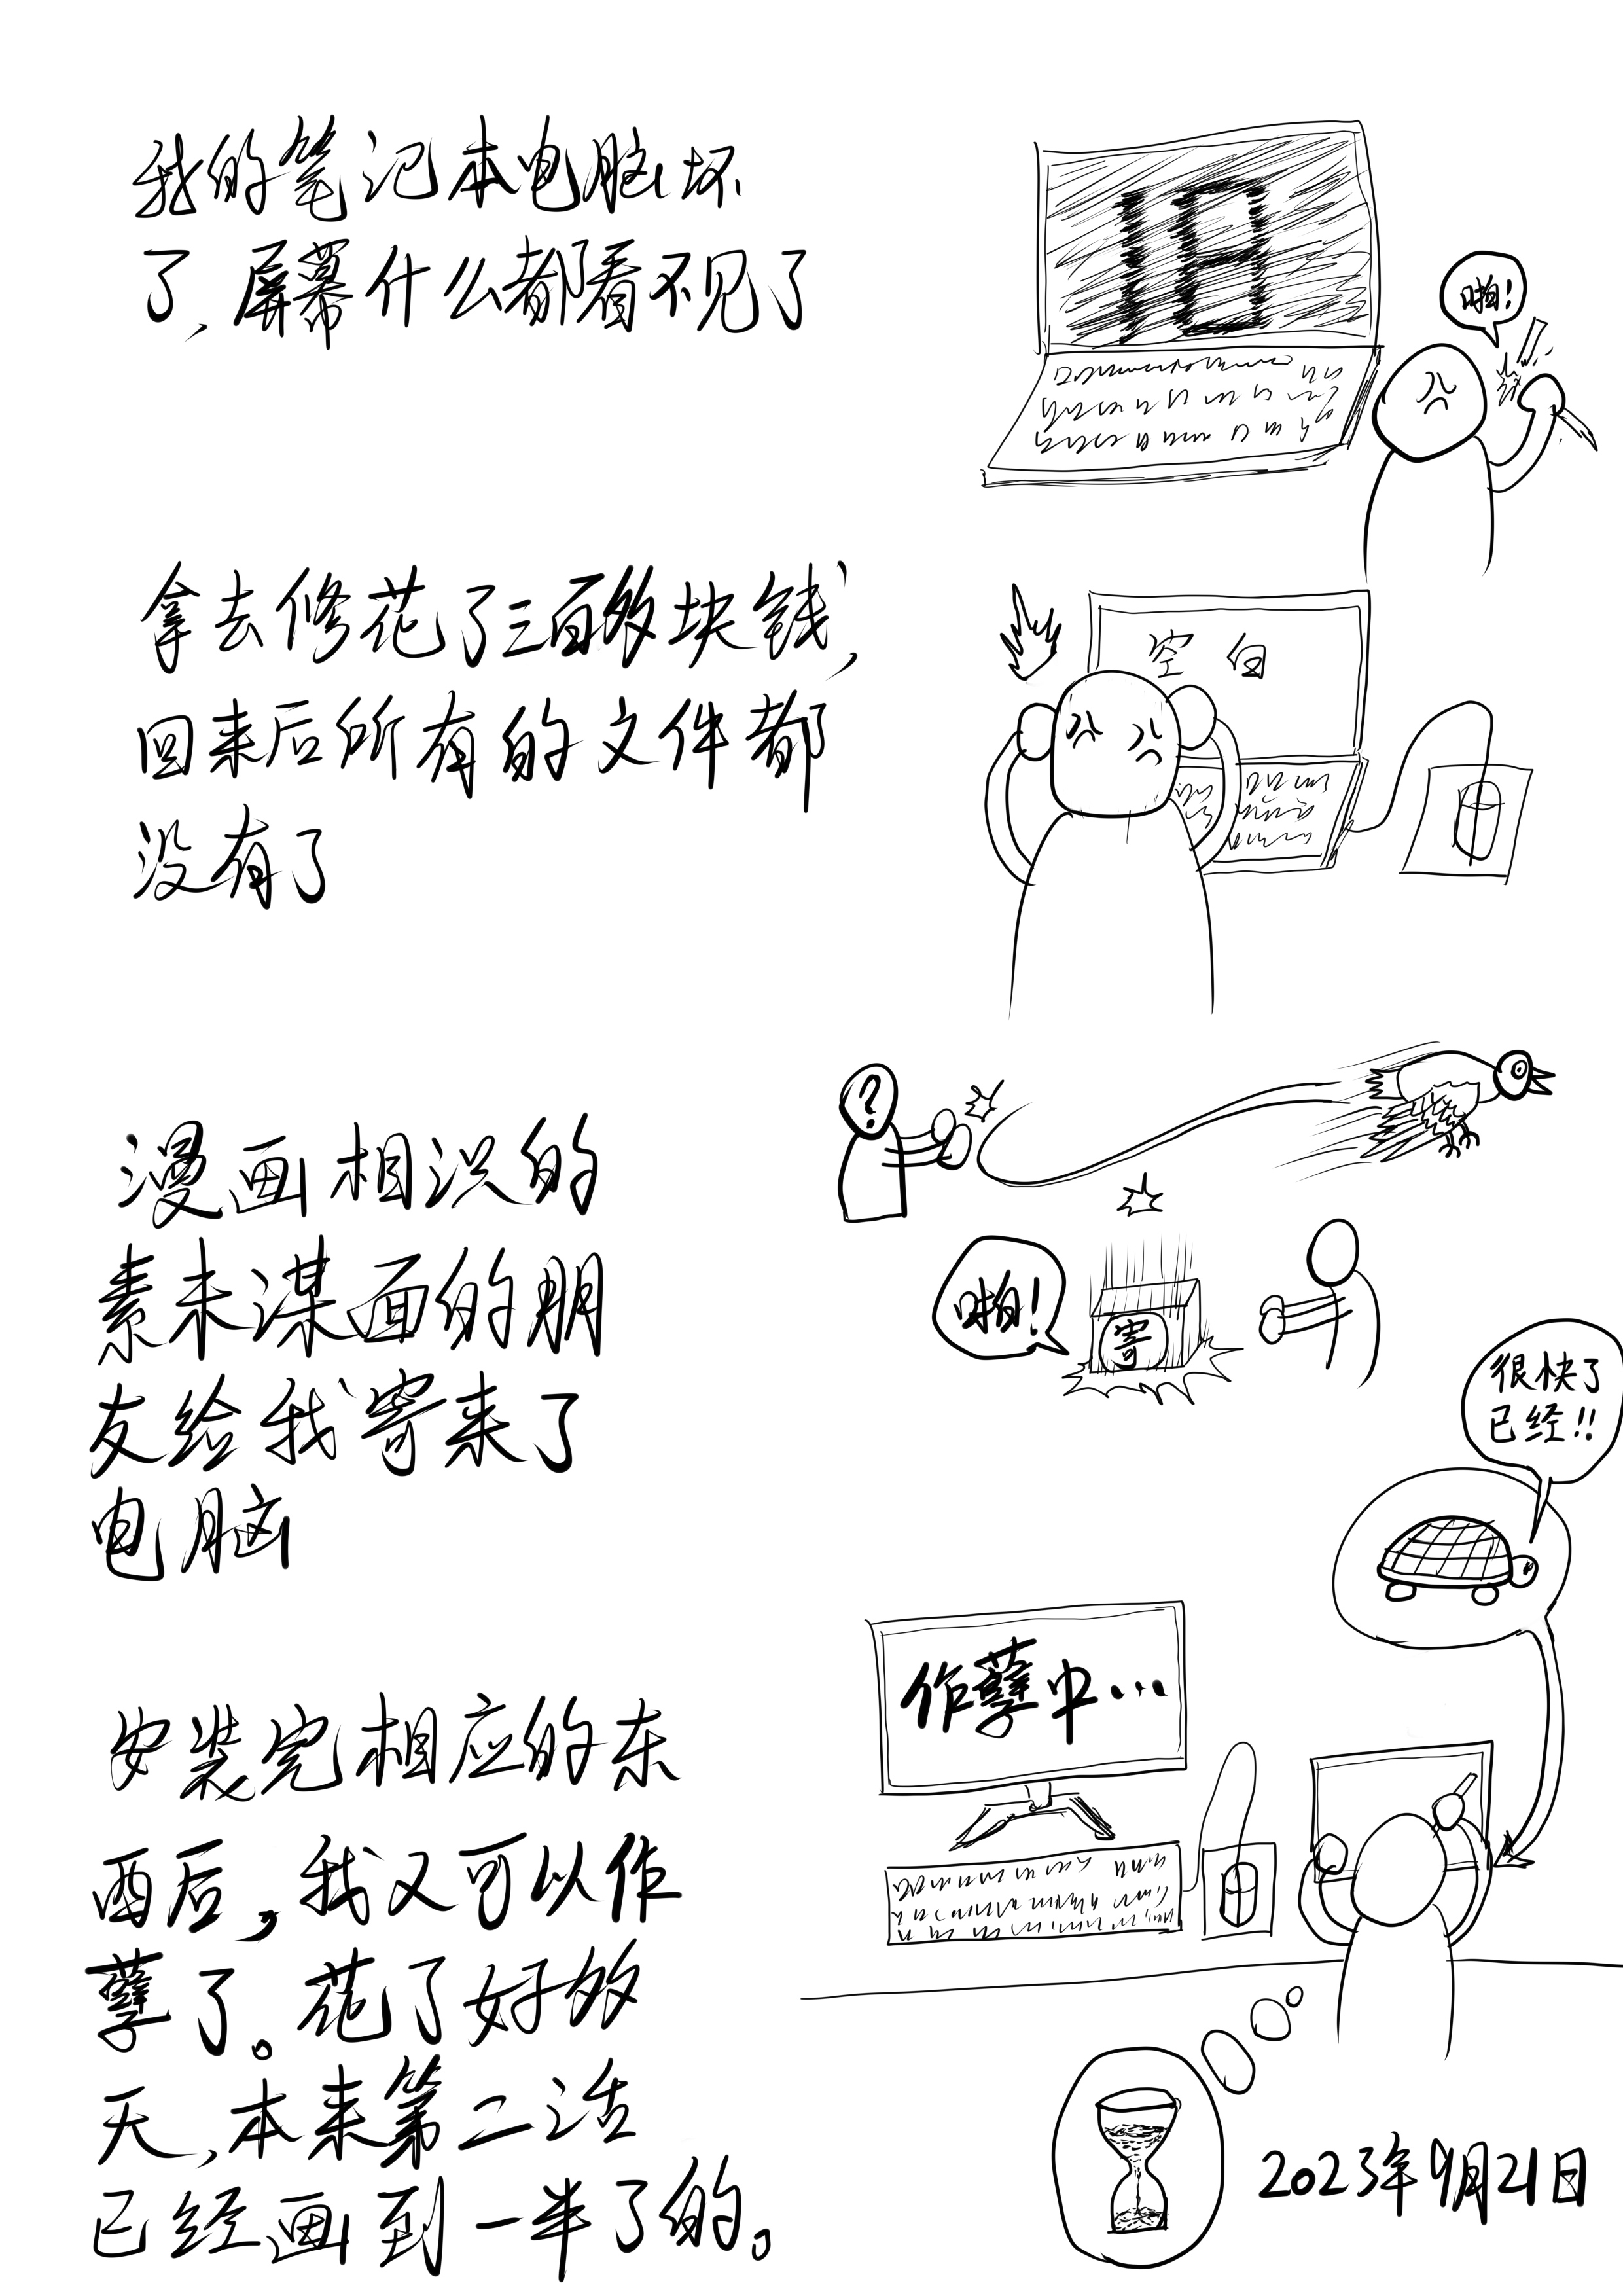 我的笔记本电脑坏
了，屏幕什么都看不见了
旧
啪！
拿去修花了三百多块钱，
回来后所有的文件都
没有了
空白
漫画相识的
素未谋面的朋
友给我寄来了
电脑
？
啪！
寄
很快了
已经！！
安装完相应的东
西后，我又可以作
孽了。花了好多
天，本来第二话
已经画到一半了的。
作孽中…
2023年9月21日